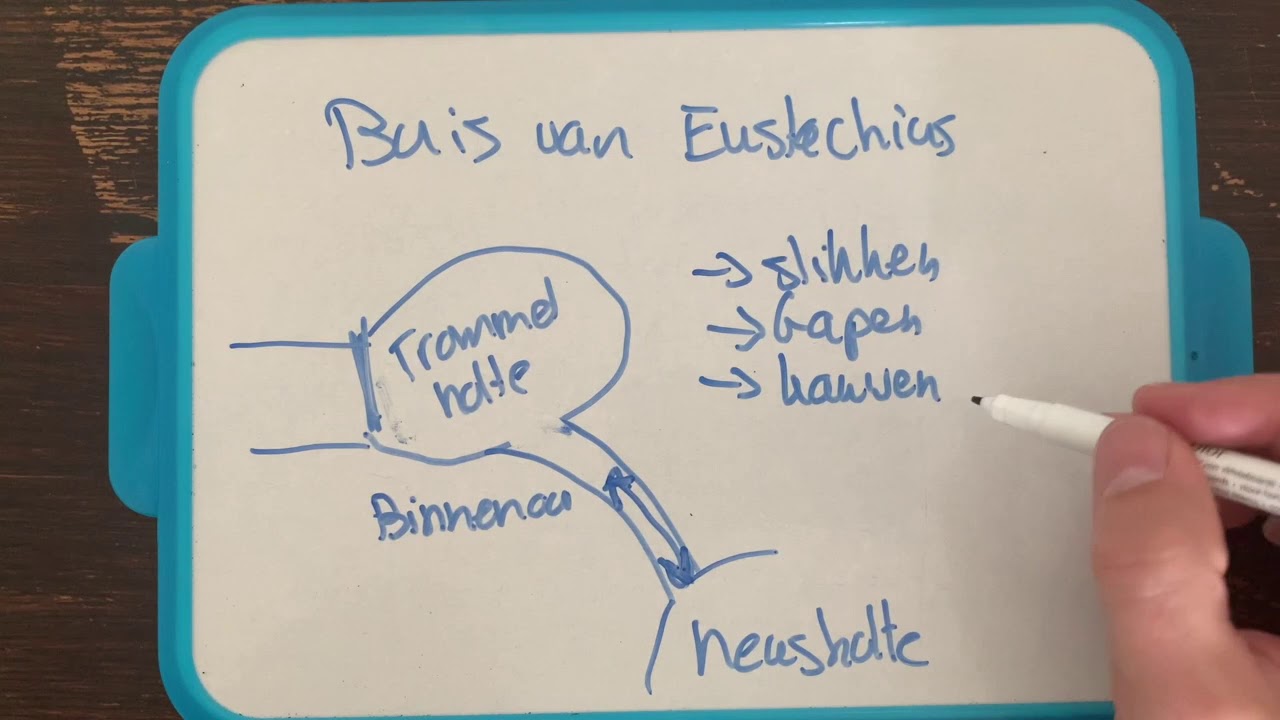 Buis van Eustachius
→ slikken
→ Gapen
→ kauwen
Trommel
holte
Binnenoo
neusholte